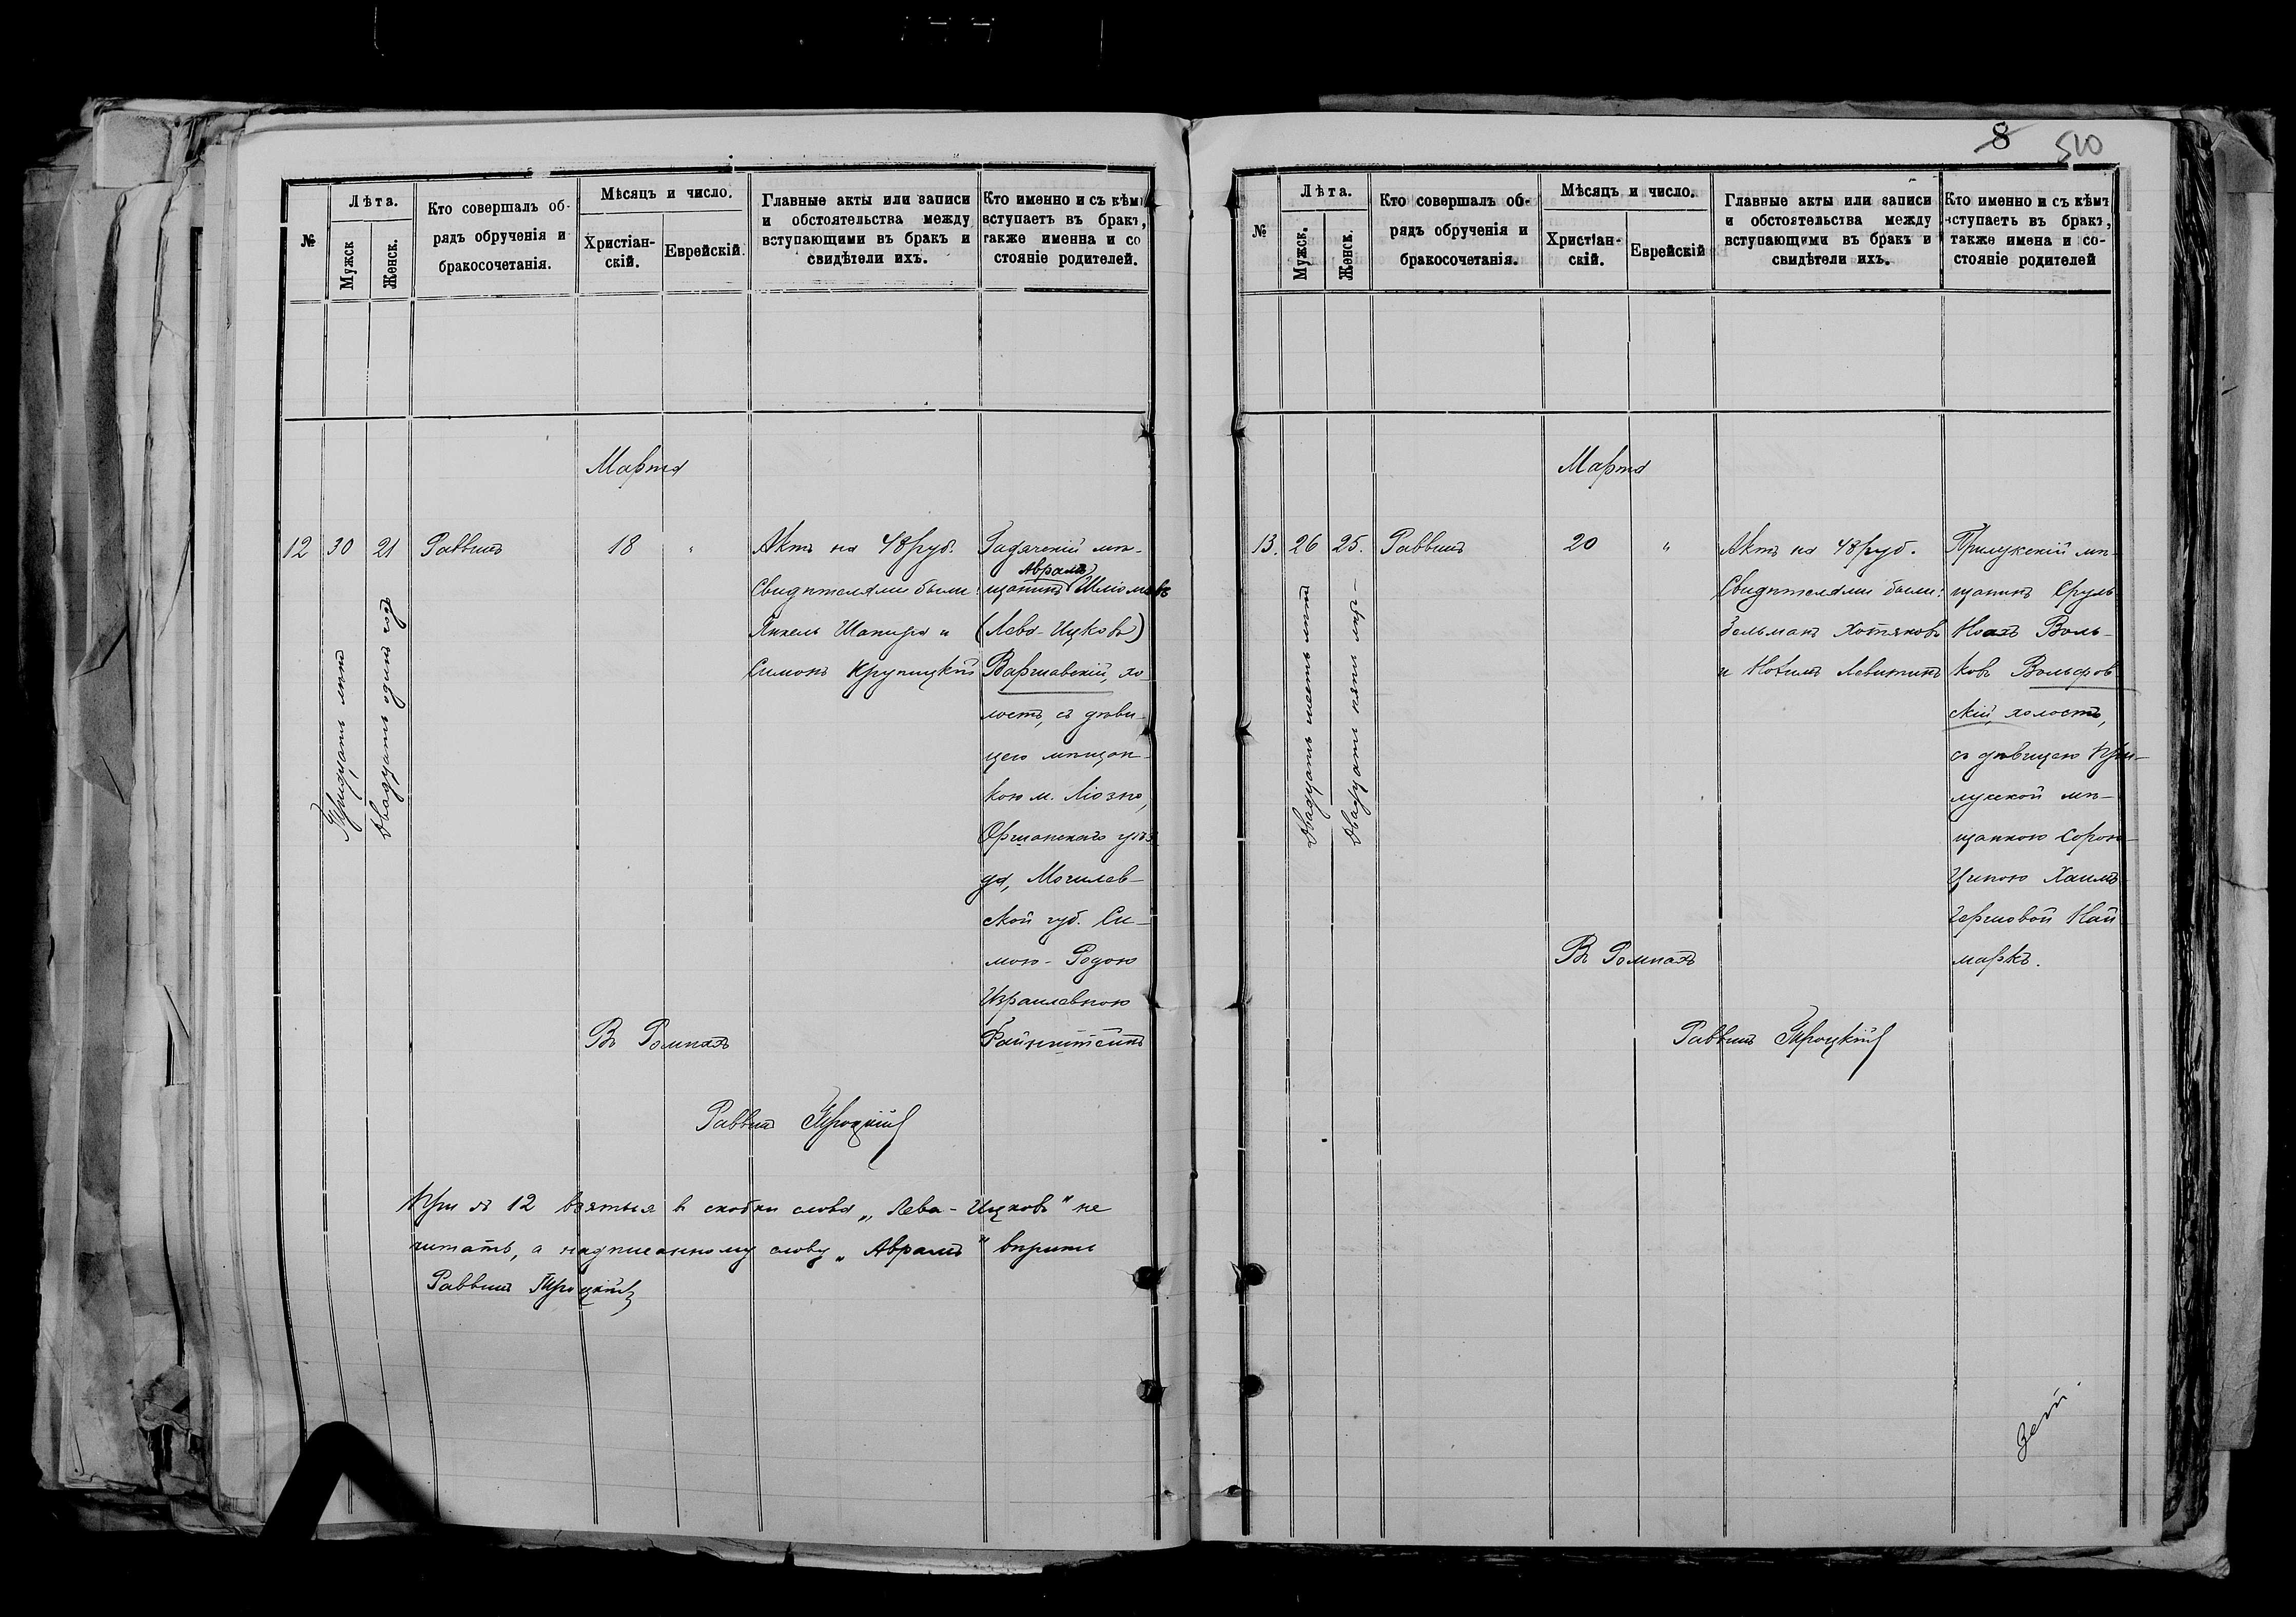 8 510
№
Лѣта.
Мужск
Женск.
Кто совершалъ об-
рядъ обрученія и
бракосочетанія.
Мѣсяцъ и число.
Христіан-
скій.
Еврейскій.
Главные акты или записи
и обстоятельства между
вступающими въ бракъ и
свидѣтели ихъ.
Кто именно и съ кѣмъ
вступаетъ въ бракъ,
также именна и со
стояніе родителей.
Марта
12 30 21 Раввинъ 18 "
Тридцать лѣтъ
Двадцать одинъ годъ
Актъ на 48 руб.
Свидѣтелями были:
Янкель Шапиро и
Симонъ Крупицкій
Гадячскій мѣ-
Аврамъ
щанинъ Шліомовъ
(Лева-Ицковъ)
Варшавскій, хо
лостъ, съ дѣви-
цею мѣщан-
кою м. Ліозно,
Оршанскаго уѣз
да, Могилев-
ской губ. Си-
мою-Родою
Израилевною
Файнштейнъ
Въ Ромнахъ
Раввинъ Троцкій
При № 12 взятыя въ скобки слова „Лева-Ицковъ" не
читать, а надписанному слову „Аврамъ" вѣрить
Раввинъ Троцкій
№
Лѣта.
Мужск.
Женск.
Кто совершалъ об-
рядъ обрученія и
бракосочетанія.
Мѣсяцъ и число.
Христіан-
скій.
Еврейскій
Главные акты или записи
и обстоятельства между
вступающими въ бракъ и
свидѣтели ихъ.
Кто именно и съ кѣмъ
вступаетъ въ бракъ,
также имена и со-
стояніе родителей
Марта
13. 26 25. Раввинъ 20 "
Двадцать шесть лѣтъ
Двадцать пять лѣтъ
Актъ на 48 руб.
Свидѣтелями были:
Зельманъ Хотяковъ
и Нохимъ Левитинъ
Прилукскій мѣ-
щанинъ Сруль
Ноахъ Воль-
ковъ Вольфов
скій, холостъ,
съ дѣвицею При-
лукской мѣ-
щанкою Сорою-
Ципою Хаимъ
Гершовой Най
маркъ.
Въ Ромнахъ
Раввинъ Троцкій